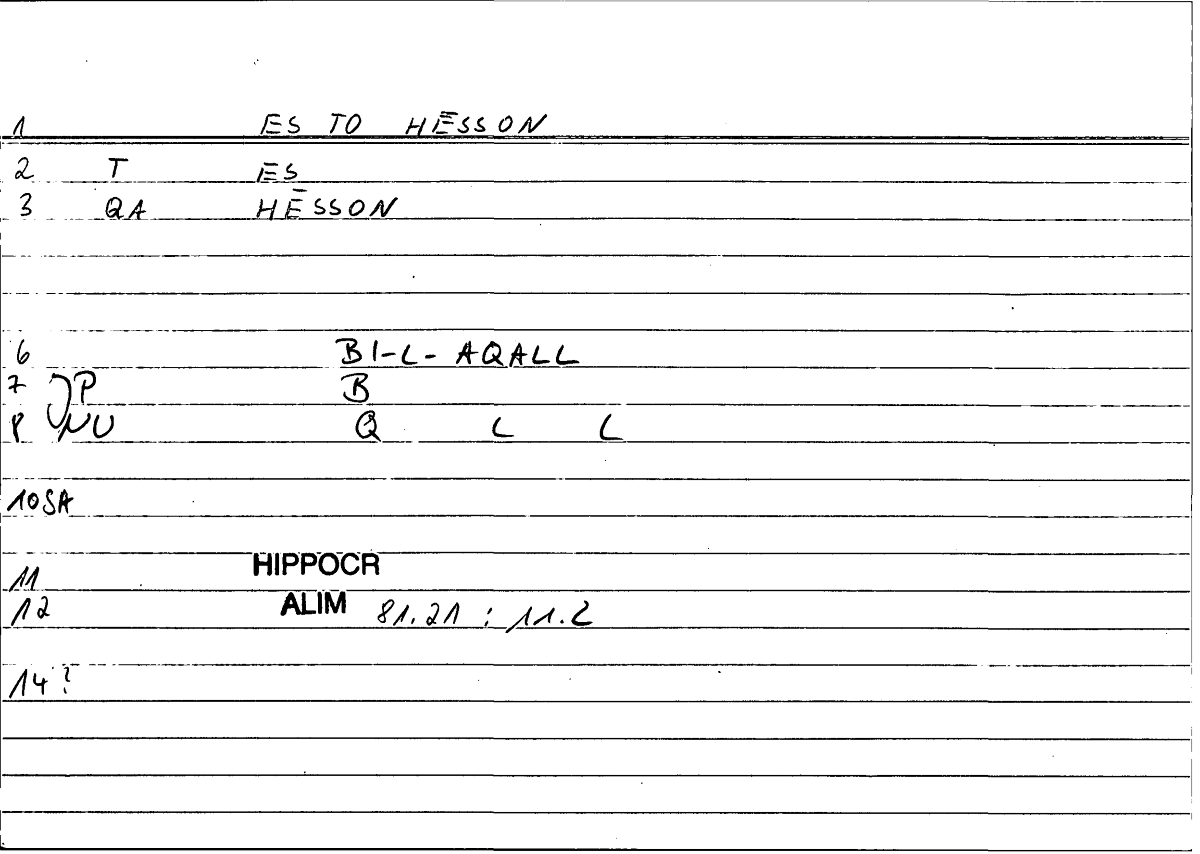 1 ES TO HĒSSON
2 T ES
3 QA HĒSSON
6 BI-L-AQALL
7 P B
8 NU Q L L
10 SA
11 HIPPOCR
12 ALIM 81.21 ; 11.2
14 ?